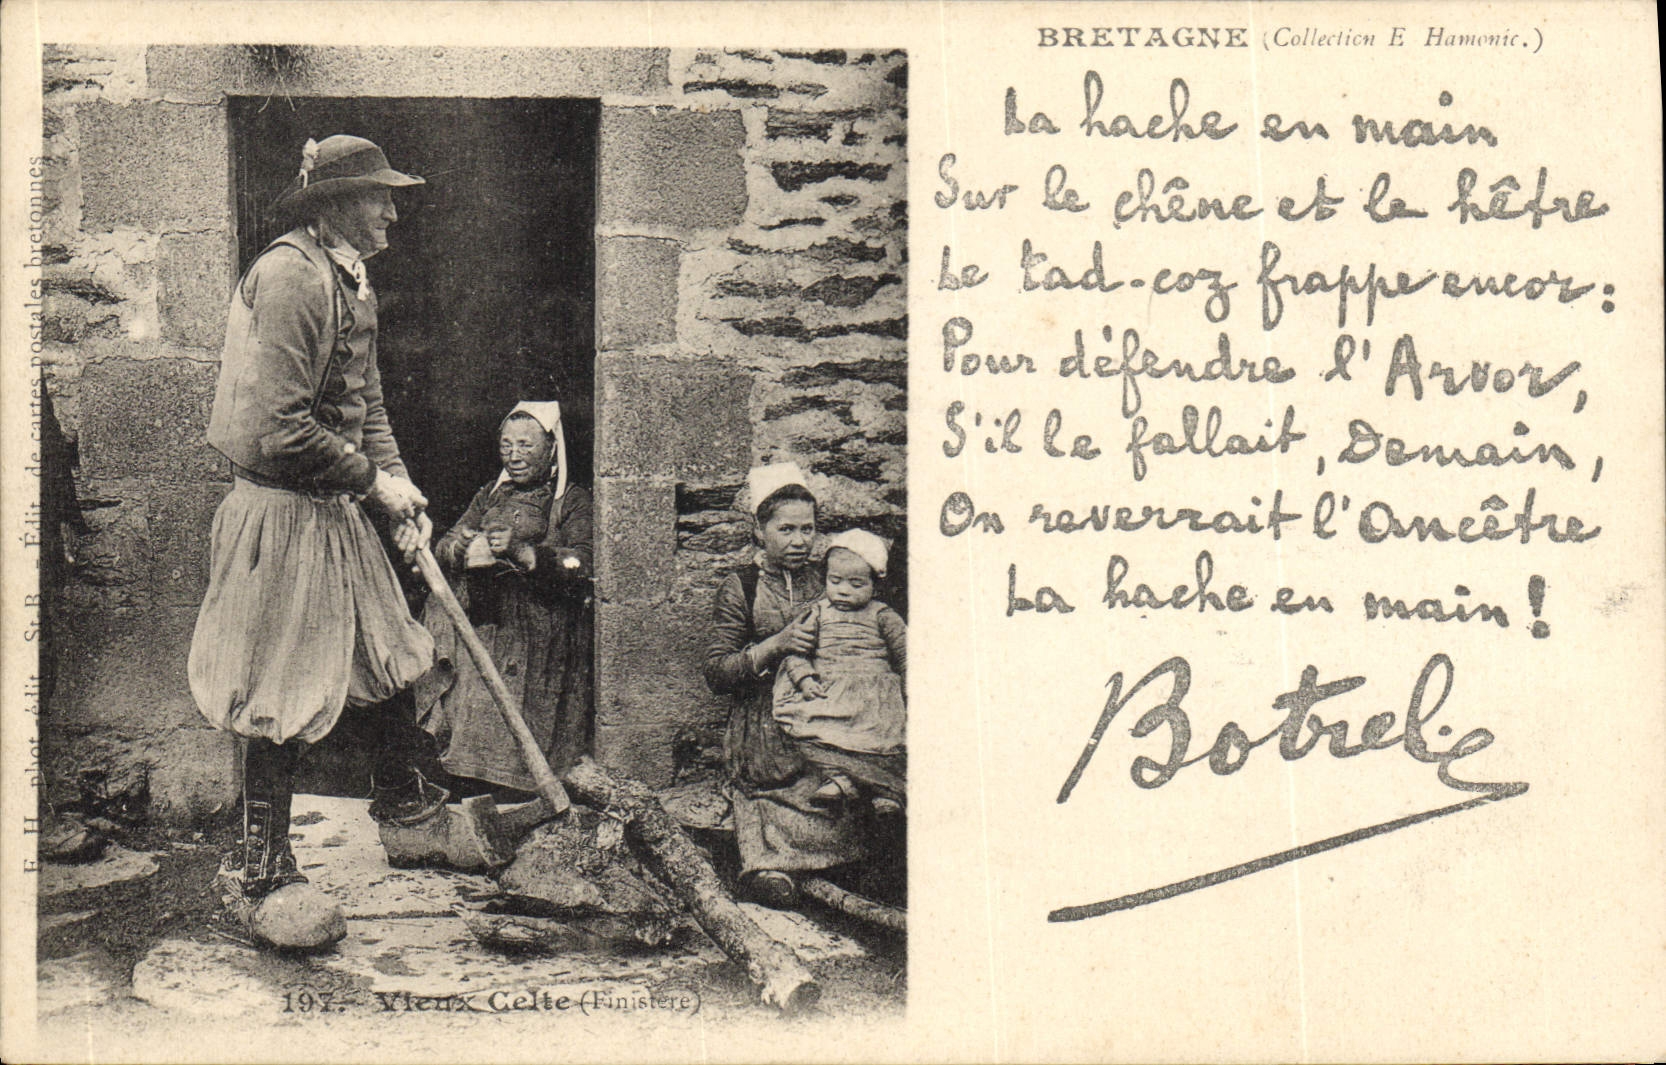 BRETAGNE (Collection E Hamonic.)
La hache en main
Sur le chêne et le hêtre
Le tad-coz frappe encor :
Pour défendre l'Arvor,
S'il le fallait, Demain,
On reverrait l'Ancêtre
La hache en main !
Botrel
E. H. phot. édit. St-B. - Édit. de cartes postales bretonnes
197. - Vieux Celte (Finistère)